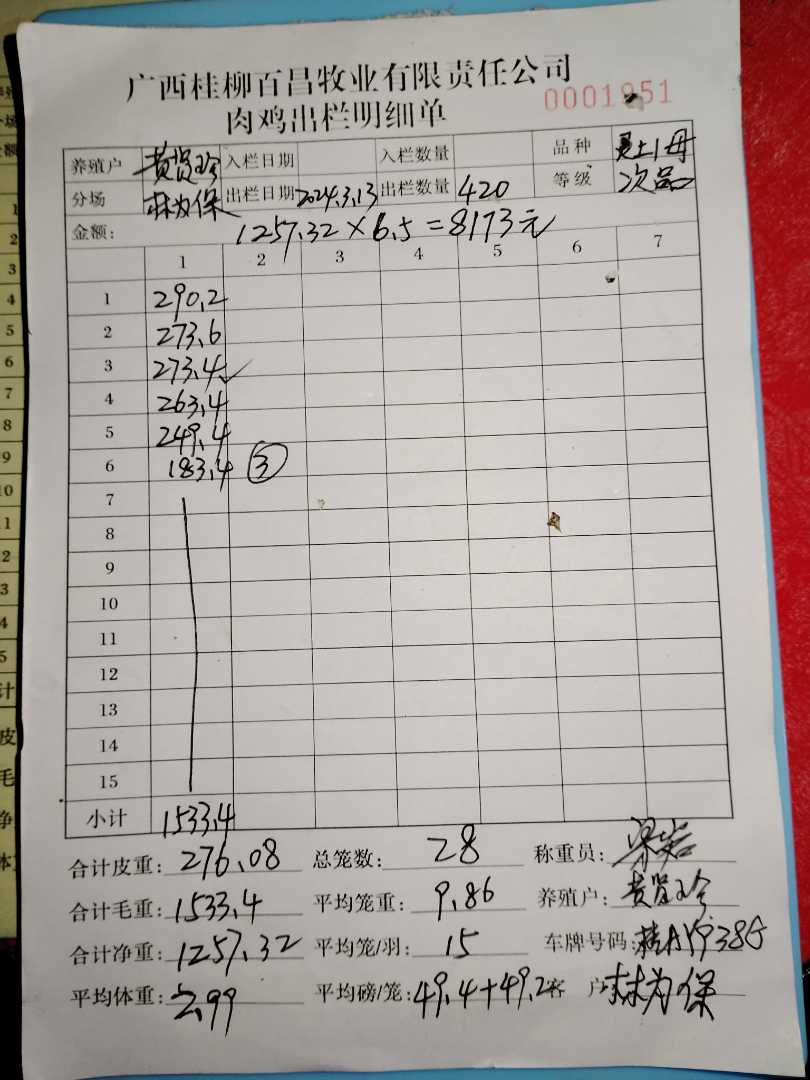 广西桂柳百昌牧业有限责任公司
肉鸡出栏明细单 0001951
养殖户 黄贤玲 入栏日期 入栏数量 品种 土1母
分场 林为保 出栏日期 2024.3.13 出栏数量 420 等级 次品
金额: 1257.32×6.5=8173元
1 2 3 4 5 6 7
1 290.2
2 273.6
3 273.4✓
4 263.4
5 249.4
6 183.4 ③
7
8
9
10
11
12
13
14
15
小计 1533.4
合计皮重: 276.08 总笼数: 28 称重员:
合计毛重: 1533.4 平均笼重: 9.86 养殖户: 黄贤玲
合计净重: 1257.32 平均笼/羽: 15 车牌号码:
平均体重: 2.99 平均磅/笼: 49.4+49.2 客 户 林为保